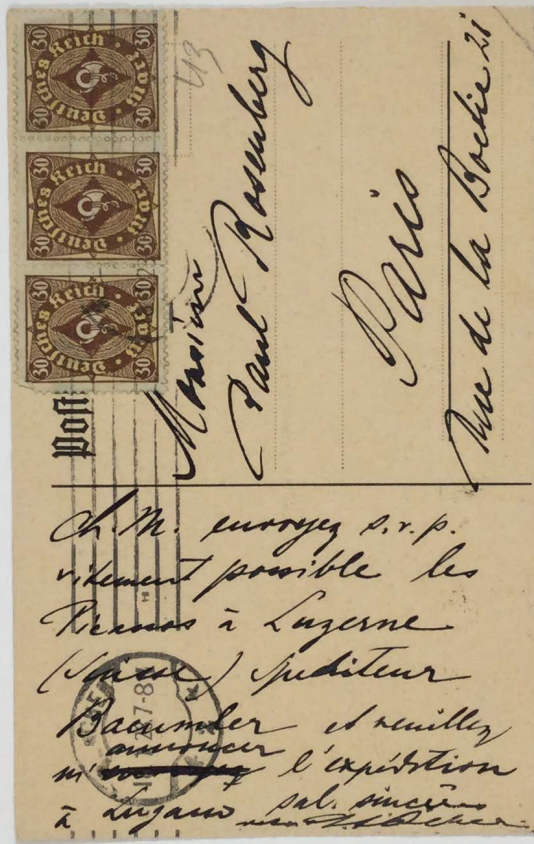 Deutsches Reich
30 30
30 30
Deutsches Reich
30 30
30 30
Deutsches Reich
30 30
30 30
Post
43
Monsieur
Paul Rosenberg
Paris
Rue de la Boëtie 21
Ch. M. envoyez s.v.p.
vitement possible les
à Luzerne
(Suisse) Spediteur
Baeumler et veuillez
annoncer
m' l'expédition
à Lugano sal. sincères
7-8